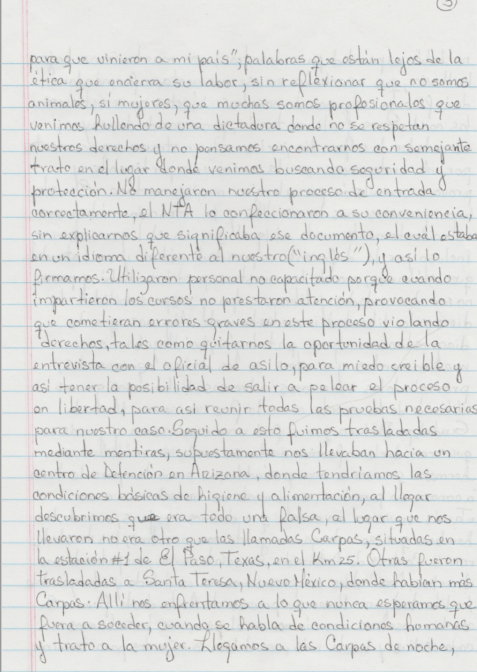 3
para que vinieron a mi país", palabras que están lejos de la
ética que encierra su labor, sin reflexionar que no somos
animales, sí mujeres, que muchas somos profesionales que
venimos hullendo de una dictadura donde no se respetan
nuestros derechos y no pensamos encontrarnos con semejante
trato en el lugar donde venimos buscando seguridad y
protección. No manejaron nuestro proceso de entrada
correctamente, el NTA lo confeccionaron a su conveniencia,
sin explicarnos que significaba ese documento, el cuál estaba
en un idioma diferente al nuestro ("inglés"), y así lo
firmamos. Utilizaron personal no capacitado porque cuando
impartieron los cursos no prestaron atención, provocando
que cometieran errores graves en este proceso violando
derechos, tales como quitarnos la oportunidad de la
entrevista con el oficial de asilo, para miedo creible y
así tener la posibilidad de salir a pelear el proceso
en libertad, para así reunir todas las pruebas necesarias
para nuestro caso. Seguido a esto fuimos trasladadas
mediante mentiras, supuestamente nos llevaban hacia un
centro de Detención en Arizona, donde tendríamos las
condiciones básicas de higiene y alimentación, al llegar
descubrimos que era todo una falsa, el lugar que nos
llevaron no era otro que las llamadas Carpas, situadas en
la estación #1 de El Paso, Texas, en el Km 25. Otras fueron
trasladadas a Santa Teresa, Nuevo México, donde habían más
Carpas. Allí nos enfrentamos a lo que nunca esperamos que
fuera a suceder, cuando se habla de condiciones humanas
y trato a la mujer. Llegamos a las Carpas de noche,